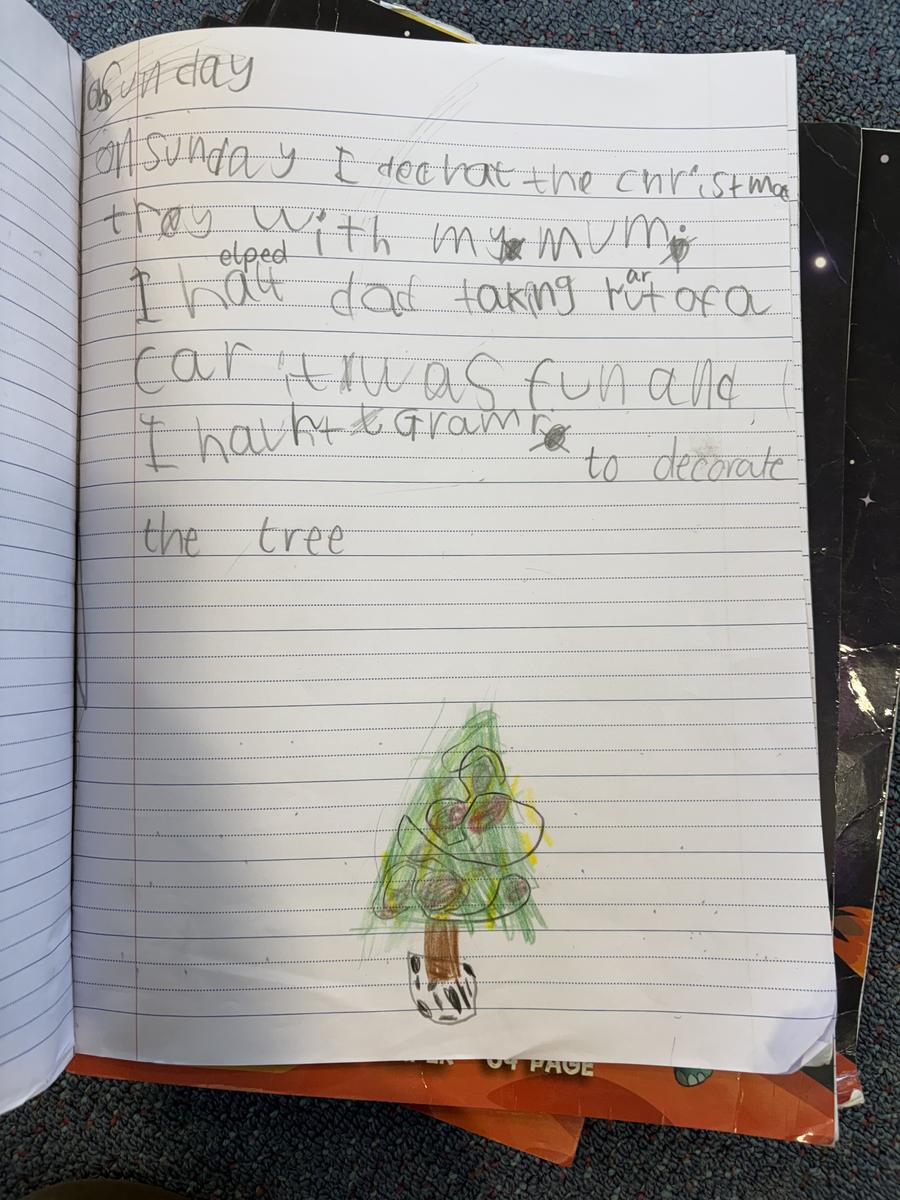 Sunday
on Sunday I decrat the christmas
troy with my mum.
elped
I halt dad taking rut of a
ar
car it was fun and
I haiht Gram to decorate
the tree
64 PAGE